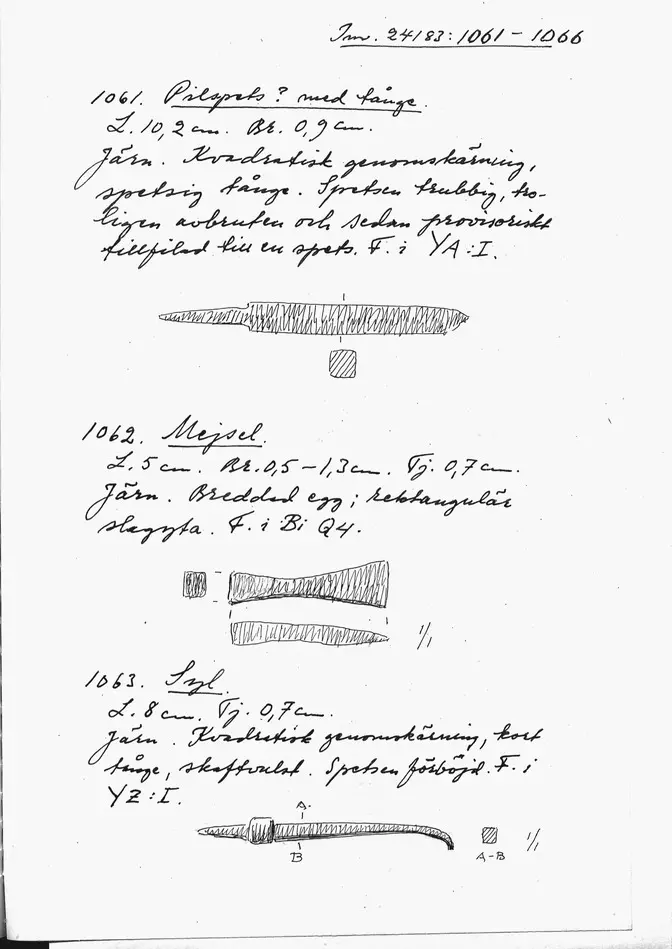 Inv. 24183:1061-1066
1061. Pilspets? med tånge.
L. 10,2 cm. Br. 0,9 cm.
Järn. Kvadratisk genomskärning,
spetsig tånge. Spetsen trubbig, tro-
ligen avbruten och sedan provisoriskt
tillfilad till en spets. F. i YA:I.
1062. Mejsel.
L. 5 cm. Br. 0,5-1,3 cm. Tj. 0,7 cm.
Järn. Breddad egg; rektangulär
slagyta. F. i Bi Q4.
1/1
1063. Syl.
L. 8 cm. Tj. 0,7 cm.
Järn. Kvadratisk genomskärning, kort
tånge, skaftvulst. Spetsen förböjd. F. i
YZ:I.
A.
B
A-B
1/1